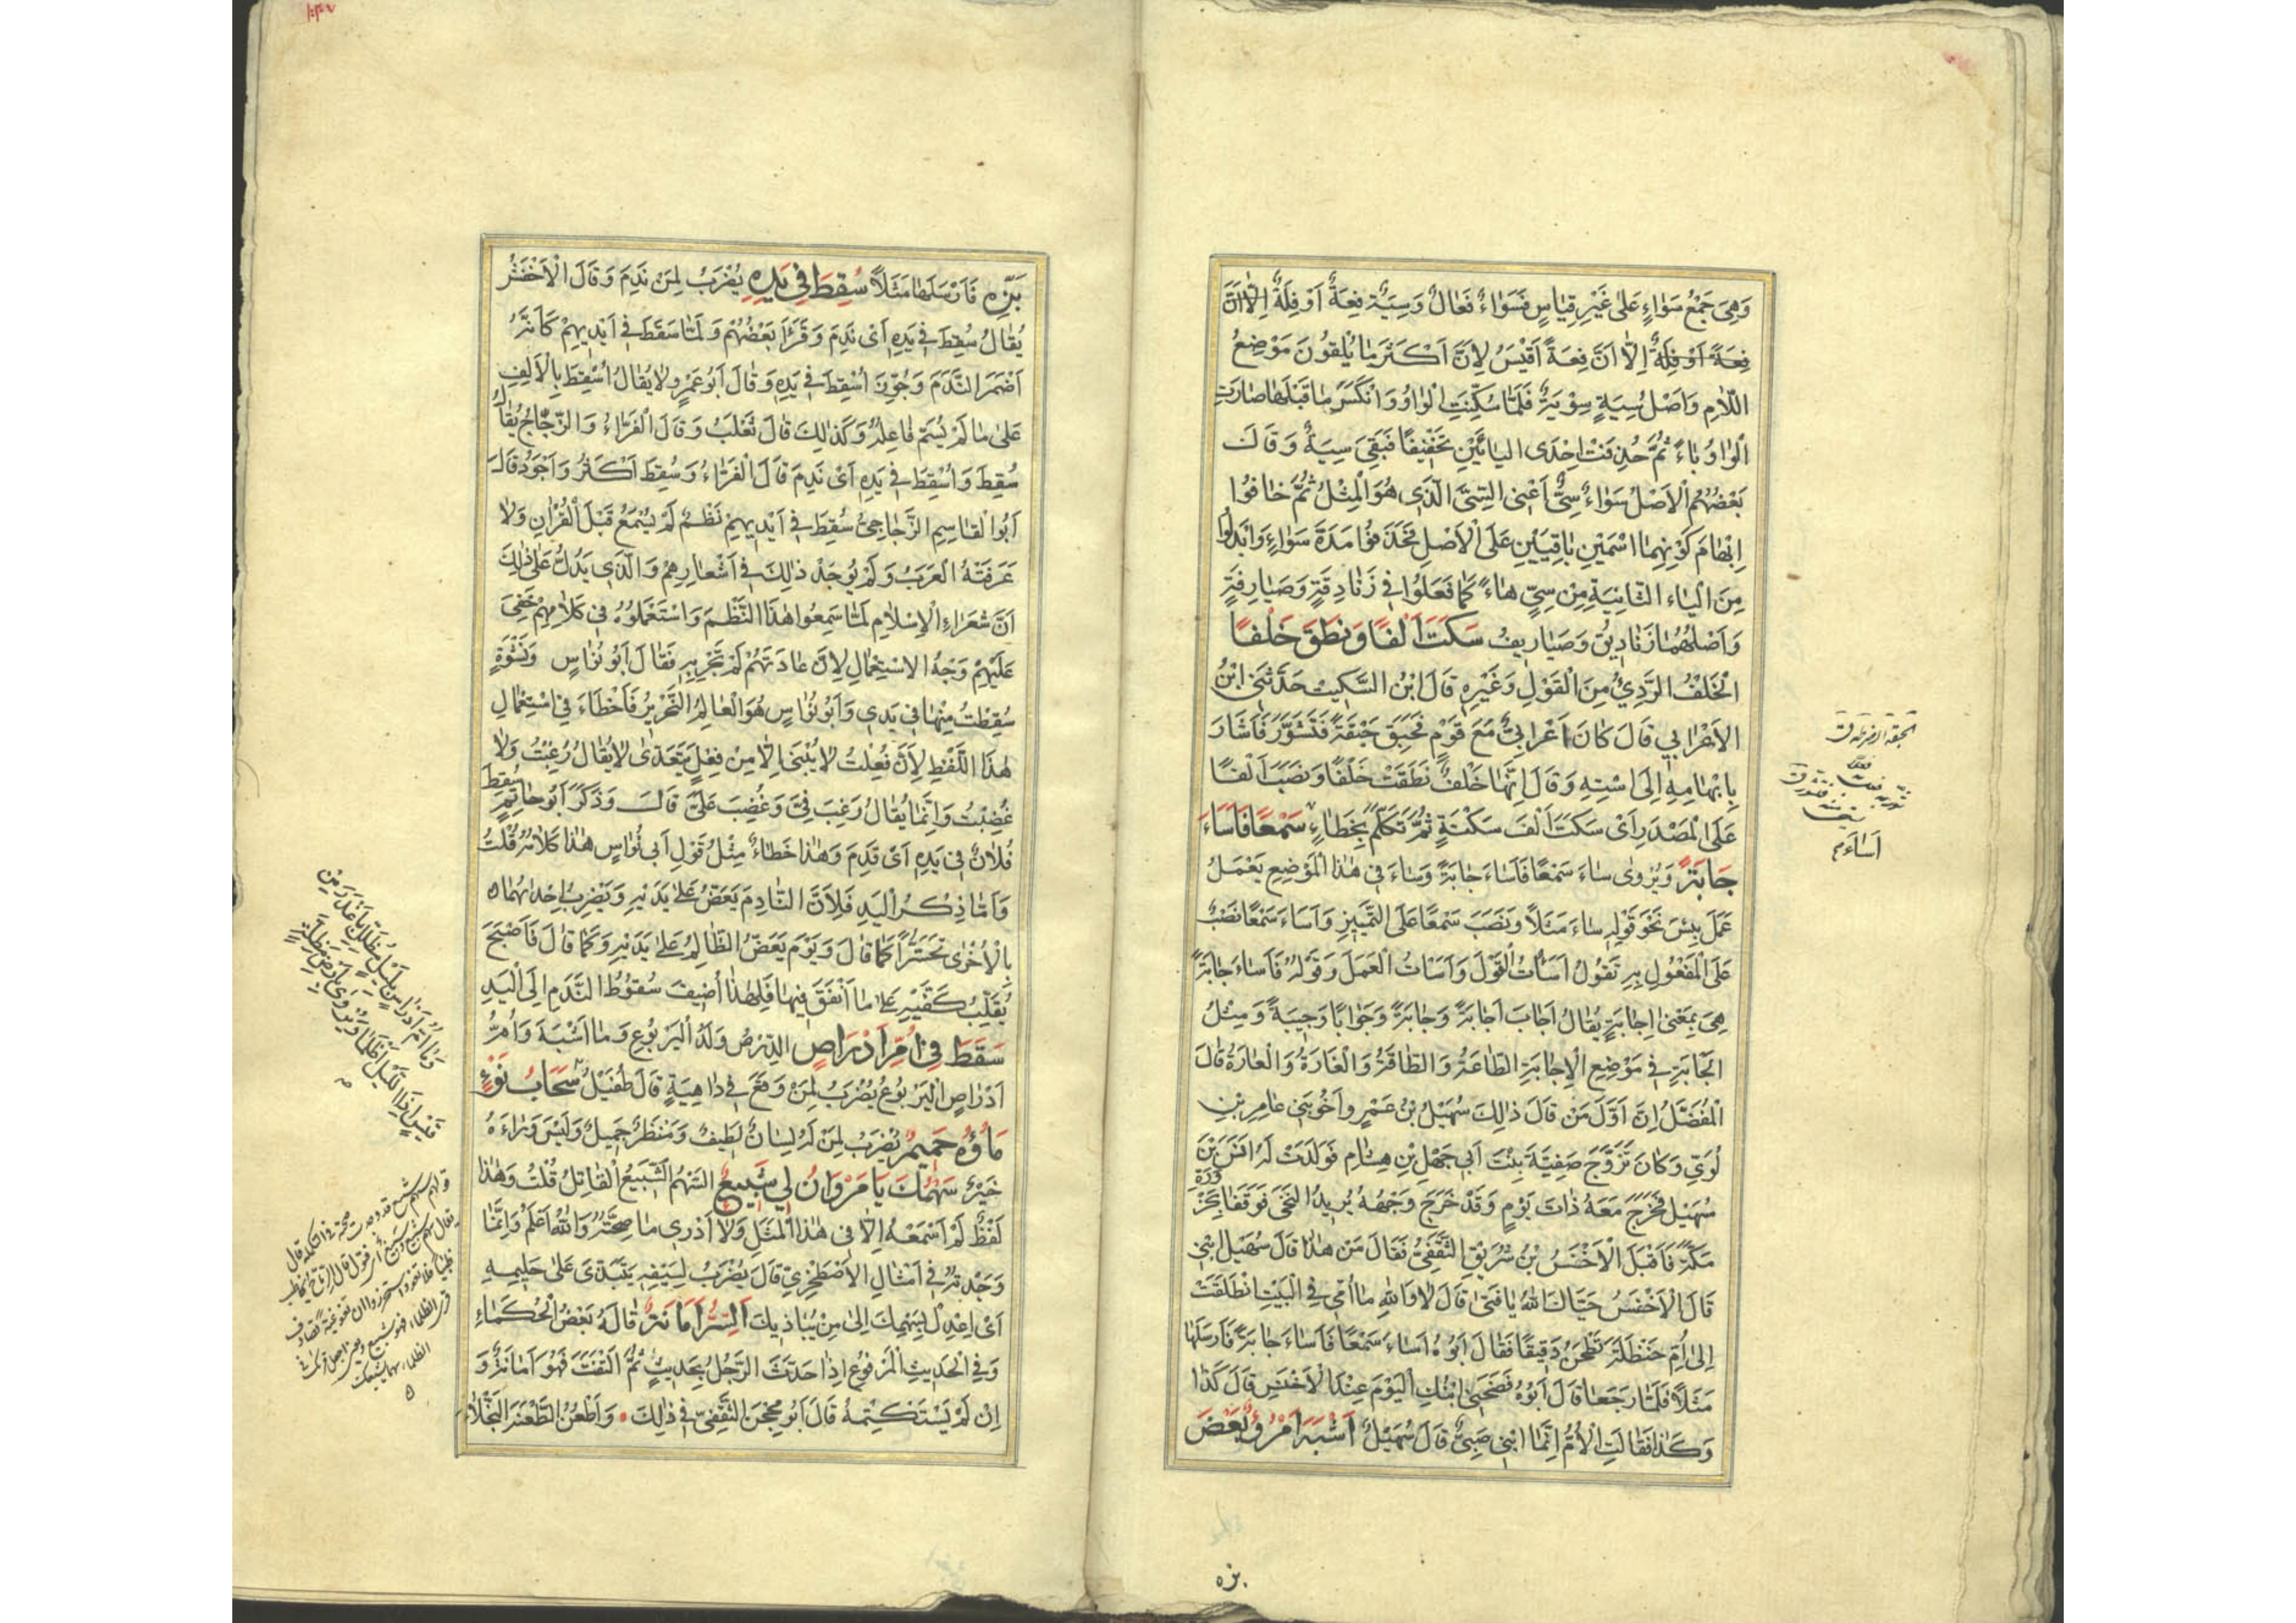 وَهِيَ جَمْعُ سَوَاءٍ عَلٰى غَيْرِ قِيَاسٍ فَسَوَاءٌ فَعَالٌ وَسِيَةٌ فِعَةٌ اَوْ فِلَةٌ اِلّا اَنَّ
فِعَةً اَوْ فِلَةٌ اِلّا اَنَّ فِعَةً اَقْيَسُ لِاَنَّ اَكْثَرَ مَا يُلْقُونَ مَوْضِعُ
اللّامِ وَاَصْلُ سِيَةٍ سِوْيَةٌ فَلَمَّا سُكِّنَتِ الْوَاوُ وَانْكَسَرَ مَا قَبْلَهَا صَارَتِ
الْوَاوُ يَاءً ثُمَّ حُذِفَتْ اِحْدَى اليَائَيْنِ تَخْفِيفًا فَبَقِيَ سِيَةٌ وَقَالَ
بَعْضُهُمُ الْاَصْلُ سَوَاءٌ سِيٌّ اَعْنِى السِّيَّ الَّذِى هُوَ الْمِثْلُ ثُمَّ خَافُوا
اِيْهَامَ كَوْنِهِمَا اسْمَيْنِ بَاقِيَيْنِ عَلَى الْاَصْلِ فَحَذَفُوا مَدَّةَ سَوَاءٍ وَابْدَلُوا
مِنَ الْيَاءِ الثَّانِيَةِ مِنْ سِيٍّ هَاءً كَمَا فَعَلُوا فِي زَنَادِقَةٍ وَصَيَارِفَةٍ
وَاَصْلُهُمَا زَنَادِيقُ وَصَيَارِيفُ سَكَتَ اَلْفًا وَنَطَقَ خَلْفًا
الْخَلْفُ الرَّدِيُّ مِنَ الْقَوْلِ وَغَيْرِهِ قَالَ ابْنُ السِّكِّيتِ حَدَّثَنِي ابْنُ
الاَعْرَابِي قَالَ كَانَ اَعْرَابِيٌّ مَعَ قَوْمٍ فَحَبَقَ حَبْقَةً فَتَشَوَّرَ فَاَشَارَ
بِاِبْهَامِهِ اِلَى اسْتِهِ وَقَالَ اِنَّهَا خَلْفٌ نَطَقَتْ خَلْفًا وَنَصَبَ اَلْفًا
عَلَى الْمَصْدَرِ اَىْ سَكَتَ اَلْفَ سَكْتَةٍ ثُمَّ تَكَلَّمَ بِخَطَاءٍ سَمْعًا فَاَسَاءَ
جَابَةً وَيُرْوٰى سَاءَ سَمْعًا فَاَسَاءَ جَابَةً وَسَاءَ فِي هٰذَا الْمَوْضِعِ يَعْمَلُ
عَمَلَ بِئْسَ نَحْوَ قَوْلِهِ سَاءَ مَثَلًا وَنَصَبَ سَمْعًا عَلَى التَّمْيِيزِ وَاَسَاءَ سَمْعًا نَصْبٌ
عَلَى الْمَفْعُولِ بِهِ تَقُولُ اَسَأْتُ الْقَوْلَ وَاَسَاْتُ الْعَمَلَ وَقَوْلُهُ فَاَسَاءَ جَابَةً
هِيَ بِمَعْنٰى اِجَابَةٍ يُقَالُ اَجَابَ اَجَابَةً وَجَابَةً وَجَوَابًا وَجِيبَةً وَمِثْلُ
الْجَابَةِ فِي مَوْضِعِ الْاِجَابَةِ الطَّاعَةُ وَالطَّاقَةُ وَالْغَارَةُ وَالْعَارَةُ قَالَ
الْمُفَضَّلُ اِنَّ اَوَّلَ مَنْ قَالَ ذٰلِكَ سُهَيْلُ بْنُ عَمْرٍو اَخُو بَنِي عَامِرِ بْنِ
لُوَيٍّ وَكَانَ تَزَوَّجَ صَفِيَّةَ بِنْتَ اَبِي جَهْلِ بْنِ هِشَامٍ فَوَلَدَتْ لَهُ اَنَسَ بْنَ
سُهَيْلٍ فَخَرَجَ مَعَهُ ذَاتَ يَوْمٍ وَقَدْ خَرَجَ وَجْهُهُ يُرِيدُ التَّحَى فَوَقَفَا بِحَزْوَرَةِ
مَكَّةَ فَاَقْبَلَ الْاَخْنَسُ بْنُ شُرَيْقٍ الثَّقَفِيُّ فَقَالَ مَنْ هٰذَا قَالَ سُهَيْلٌ ابْنِي
قَالَ الْاَخْنَسُ حَيَّاكَ اللّٰهُ يَا فَتٰى قَالَ لَا وَاللّٰهِ مَا اُمِّي فِي الْبَيْتِ انْطَلَقَتْ
اِلٰى اُمِّ حَنْظَلَةَ تَطْحَنُ دَقِيقًا فَقَالَ اَبُوهُ اَسَاءَ سَمْعًا فَاَسَاءَ جَابَةً فَاَرْسَلَهَا
مَثَلًا فَلَمَّا رَجَعَا قَالَ اَبُوهُ فَضَحَنِي ابْنُكِ الْيَوْمَ عِنْدَ الْاَخْنَسِ قَالَ كَذَا
وَكَذَا فَقَالَتِ الْاُمُّ اِنَّمَا ابْنِي صَبِيٌّ قَالَ سُهَيْلٌ اَشْبَهَ امْرُؤٌ بَعْضَ
اَسَاءَ م
بزه
بَزِّهِ فَاَرْسَلَهَا مَثَلًا سُقِطَ فِي يَدِهِ يُضْرَبُ لِمَنْ نَدِمَ وَقَالَ الْاَخْفَشُ
يُقَالُ سُقِطَ فِي يَدِهِ اَىْ نَدِمَ وَقَرَأَ بَعْضُهُمْ وَلَمَّا سَقَطَ فِي اَيْدِيهِمْ كَاَنَّهُ
اَضْمَرَ النَّدَمَ وَجُوِّزَ اُسْقِطَ فِي يَدِهِ وَقَالَ اَبُو عَمْرٍو لَا يُقَالُ اُسْقِطَ بِالْاَلِفِ
عَلٰى مَا لَمْ يُسَمَّ فَاعِلُهُ وَكَذٰلِكَ قَالَ ثَعْلَبُ وَقَالَ الْفَرَّاءُ وَالزَّجَّاجُ يُقَالُ
سُقِطَ وَاُسْقِطَ فِي يَدِهِ اَىْ نَدِمَ قَالَ الْفَرَّاءُ وَسُقِطَ اَكْثَرُ وَاَجْوَدُ قَالَ
اَبُوا الْقَاسِمِ الزَّجَاجِيُّ سُقِطَ فِي اَيْدِيهِمْ نَظْمٌ لَمْ يُسْمَعْ قَبْلَ الْقُرْاٰنِ وَلَا
عَرَفَتْهُ الْعَرَبُ وَلَمْ يُوجَدْ ذٰلِكَ فِي اَشْعَارِهِمْ وَالَّذِى يَدُلُّ عَلٰى ذٰلِكَ
اَنَّ شُعَرَاءَ الْاِسْلَامِ لَمَّا سَمِعُوا هٰذَا النَّظْمَ وَاسْتَعْمَلُوهُ فِي كَلَامِهِمْ خَفِيَ
عَلَيْهِمْ وَجْهُ الِاسْتِعْمَالِ لِاَنَّ عَادَتَهُمْ لَمْ تَجْرِ بِهِ فَقَالَ اَبُو نُوَاسٍ وَنَشْوَةٍ
سُقِطْتُ مِنْهَا فِي يَدِي وَاَبُو نُوَاسٍ هُوَ الْعَالِمُ النِّحْرِيرُ فَاَخْطَاءَ فِي اسْتِعْمَالِ
هٰذَا اللَّفْظِ لِاَنَّ فُعِلْتُ لَا يُبْنٰى اِلَّا مِنْ فِعْلٍ يَتَعَدّٰى لَا يُقَالُ رُغِبْتُ وَلَا
غُضِبْتُ وَاِنَّمَا يُقَالُ رُغِبَ فِيَّ وَغُضِبَ عَلَيَّ قَالَ وَذَكَرَ اَبُو حَاتِمٍ سَقَطَ
فُلَانٌ فِي يَدِهِ اَىْ نَدِمَ وَهٰذَا خَطَاءٌ مِثْلُ قَوْلِ اَبِي نُوَاسٍ هٰذَا كَلَامُهُ قُلْتُ
وَاَمَّا ذِكْرُ الْيَدِ فَلِاَنَّ النَّادِمَ يَعَضُّ عَلٰى يَدَيْهِ وَيَضْرِبُ اِحْدٰيهُمَا
بِالْاُخْرٰى تَحَسُّرًا كَمَا قَالَ وَيَوْمَ يَعَضُّ الظَّالِمُ عَلٰى يَدَيْهِ وَكَمَا قَالَ فَاَصْبَحَ
يُقَلِّبُ كَفَّيْهِ عَلٰى مَا اَنْفَقَ فِيهَا فَلِهٰذَا اُضِيفَ سُقُوطُ النَّدَمِ اِلَى الْيَدِ
سَقَطَ فِي اُمِّ اَدْرَاصٍ الدِّرْصُ وَلَدُ الْيَرْبُوعِ وَمَا اَشْبَهَ وَاُمُّ
اَدْرَاصٍ الْيَرْبُوعُ يُضْرَبُ لِمَنْ وَقَعَ فِي دَاهِيَةٍ قَالَ طُفَيْلٌ سَحَابُ نَوْءٍ
مَاؤُهُ حَمِيمٌ يُضْرَبُ لِمَنْ لَهُ لِسَانٌ لَطِيفٌ وَمَنْظَرٌ جَمِيلٌ وَلَيْسَ وَرَاءَهُ
خَيْرٌ سَهْمُكَ يَا مَرْوَانُ لِي شَبِيعٌ السَّهْمُ الشَّبِيعُ الْقَاتِلُ قُلْتُ وَهٰذَا
لَفْظٌ لَمْ اَسْمَعْهُ اِلَّا فِي هٰذَا الْمَثَلِ وَلَا اَدْرِى مَا صِحَّتُهُ وَاللّٰهُ اَعْلَمُ وَاِنَّمَا
وَجَدْتُهُ فِي اَمْثَالِ الْاِصْطَخْرِيِّ قَالَ يُضْرَبُ لِسَفِيهٍ يَتَبَدّٰى عَلٰى حَلِيمٍ
اَىْ اِعْدِلْ بِسَهْمِكَ اِلٰى مَنْ يُبَاذِيكَ اَلسِّرُّ اَمَانَةٌ قَالَهُ بَعْضُ الْحُكَمَاءِ
وَفِي الْحَدِيثِ الْمَرْفُوعِ اِذَا حَدَّثَ الرَّجُلُ بِحَدِيثٍ ثُمَّ الْتَفَتَ فَهُوَ اَمَانَةٌ وَ
اِنْ لَمْ يَسْتَكْتِمْهُ قَالَ اَبُو مِحْجَنٍ الثَّقَفِيُّ فِي ذٰلِكَ وَاَطْعَنُ الطَّعْنَةَ النَّجْلَاءَ
وَمَا اُمُّ اَدْرَاصٍ بِاَرْضٍ مَضَلَّةٍ بِاَغْدَرَ مِنْ
قَيْسٍ اِذَا اللَّيْلُ اَظْلَمَا